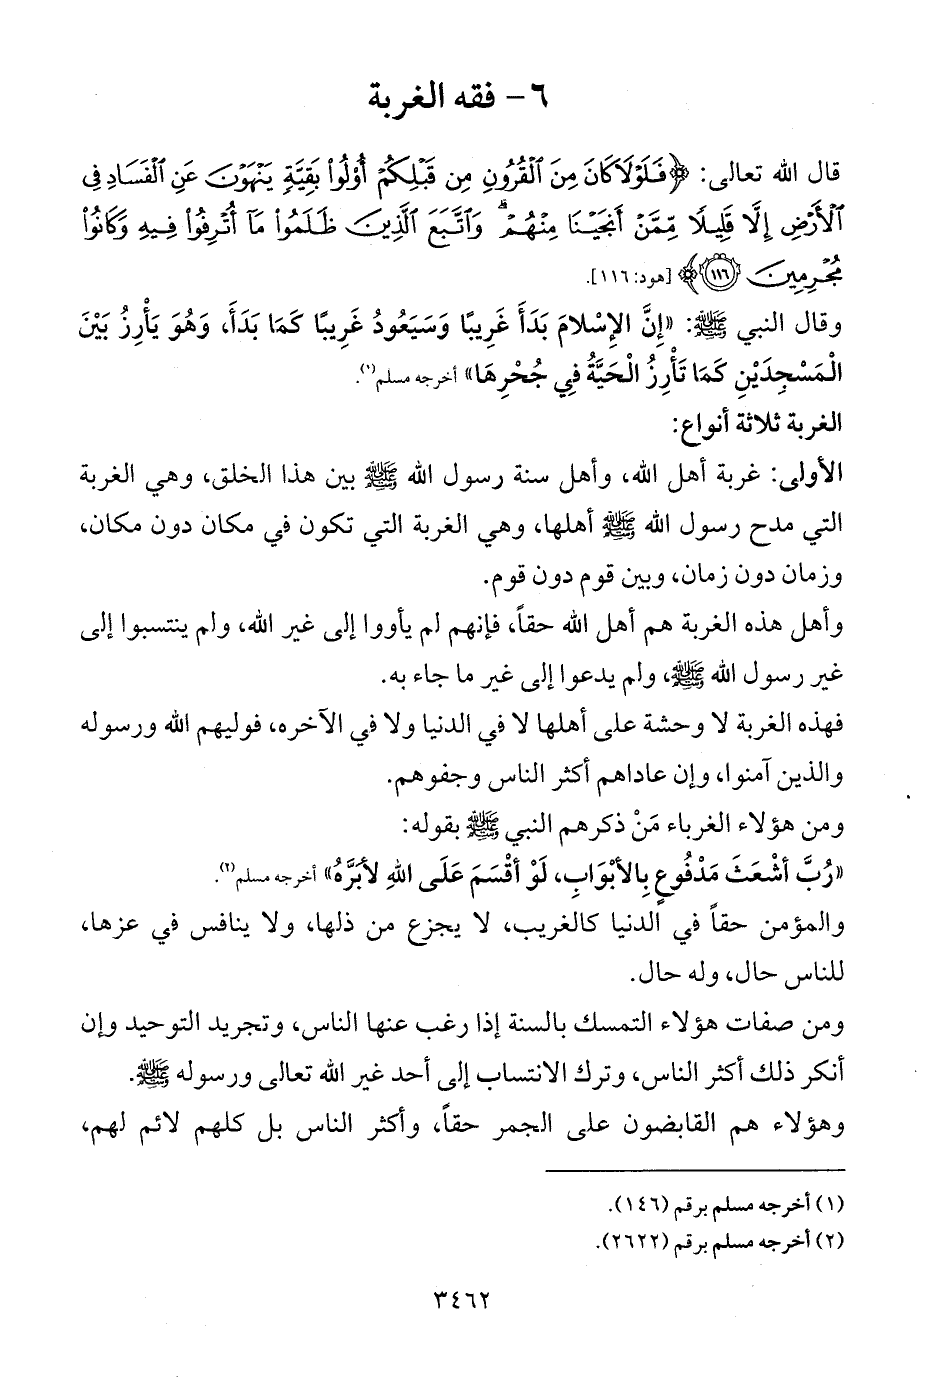 ٦- فقه الغربة
قال الله تعالى: ﴿فَلَوْلَا كَانَ مِنَ ٱلْقُرُونِ مِن قَبْلِكُمْ أُوْلُواْ بَقِيَّةٍ يَنْهَوْنَ عَنِ ٱلْفَسَادِ فِى
ٱلْأَرْضِ إِلَّا قَلِيلًا مِّمَّنْ أَنجَيْنَا مِنْهُمْ ۗ وَٱتَّبَعَ ٱلَّذِينَ ظَلَمُواْ مَآ أُتْرِفُواْ فِيهِ وَكَانُواْ
مُجْرِمِينَ ١١٦﴾ [هود: ١١٦].
وقال النبي ﷺ: «إِنَّ الإِسْلامَ بَدَأَ غَرِيبًا وَسَيَعُودُ غَرِيبًا كَمَا بَدَأَ، وَهُوَ يَأْرِزُ بَيْنَ
الْمَسْجِدَيْنِ كَمَا تَأْرِزُ الْحَيَّةُ فِي جُحْرِهَا» أخرجه مسلم(١).
الغربة ثلاثة أنواع:
الأولى: غربة أهل الله، وأهل سنة رسول الله ﷺ بين هذا الخلق، وهي الغربة
التي مدح رسول الله ﷺ أهلها، وهي الغربة التي تكون في مكان دون مكان،
وزمان دون زمان، وبين قوم دون قوم.
وأهل هذه الغربة هم أهل الله حقاً، فإنهم لم يأووا إلى غير الله، ولم ينتسبوا إلى
غير رسول الله ﷺ، ولم يدعوا إلى غير ما جاء به.
فهذه الغربة لا وحشة على أهلها لا في الدنيا ولا في الآخره، فوليهم الله ورسوله
والذين آمنوا، وإن عاداهم أكثر الناس وجفوهم.
ومن هؤلاء الغرباء مَنْ ذكرهم النبي ﷺ بقوله:
«رُبَّ أَشْعَثَ مَدْفُوعٍ بِالأَبْوَابِ، لَوْ أَقْسَمَ عَلَى اللهِ لأَبَرَّهُ» أخرجه مسلم(٢).
والمؤمن حقاً في الدنيا كالغريب، لا يجزع من ذلها، ولا ينافس في عزها،
للناس حال، وله حال.
ومن صفات هؤلاء التمسك بالسنة إذا رغب عنها الناس، وتجريد التوحيد وإن
أنكر ذلك أكثر الناس، وترك الانتساب إلى أحد غير الله تعالى ورسوله ﷺ.
وهؤلاء هم القابضون على الجمر حقاً، وأكثر الناس بل كلهم لائم لهم،
(١) أخرجه مسلم برقم (١٤٦).
(٢) أخرجه مسلم برقم (٢٦٢٢).
٣٤٦٢